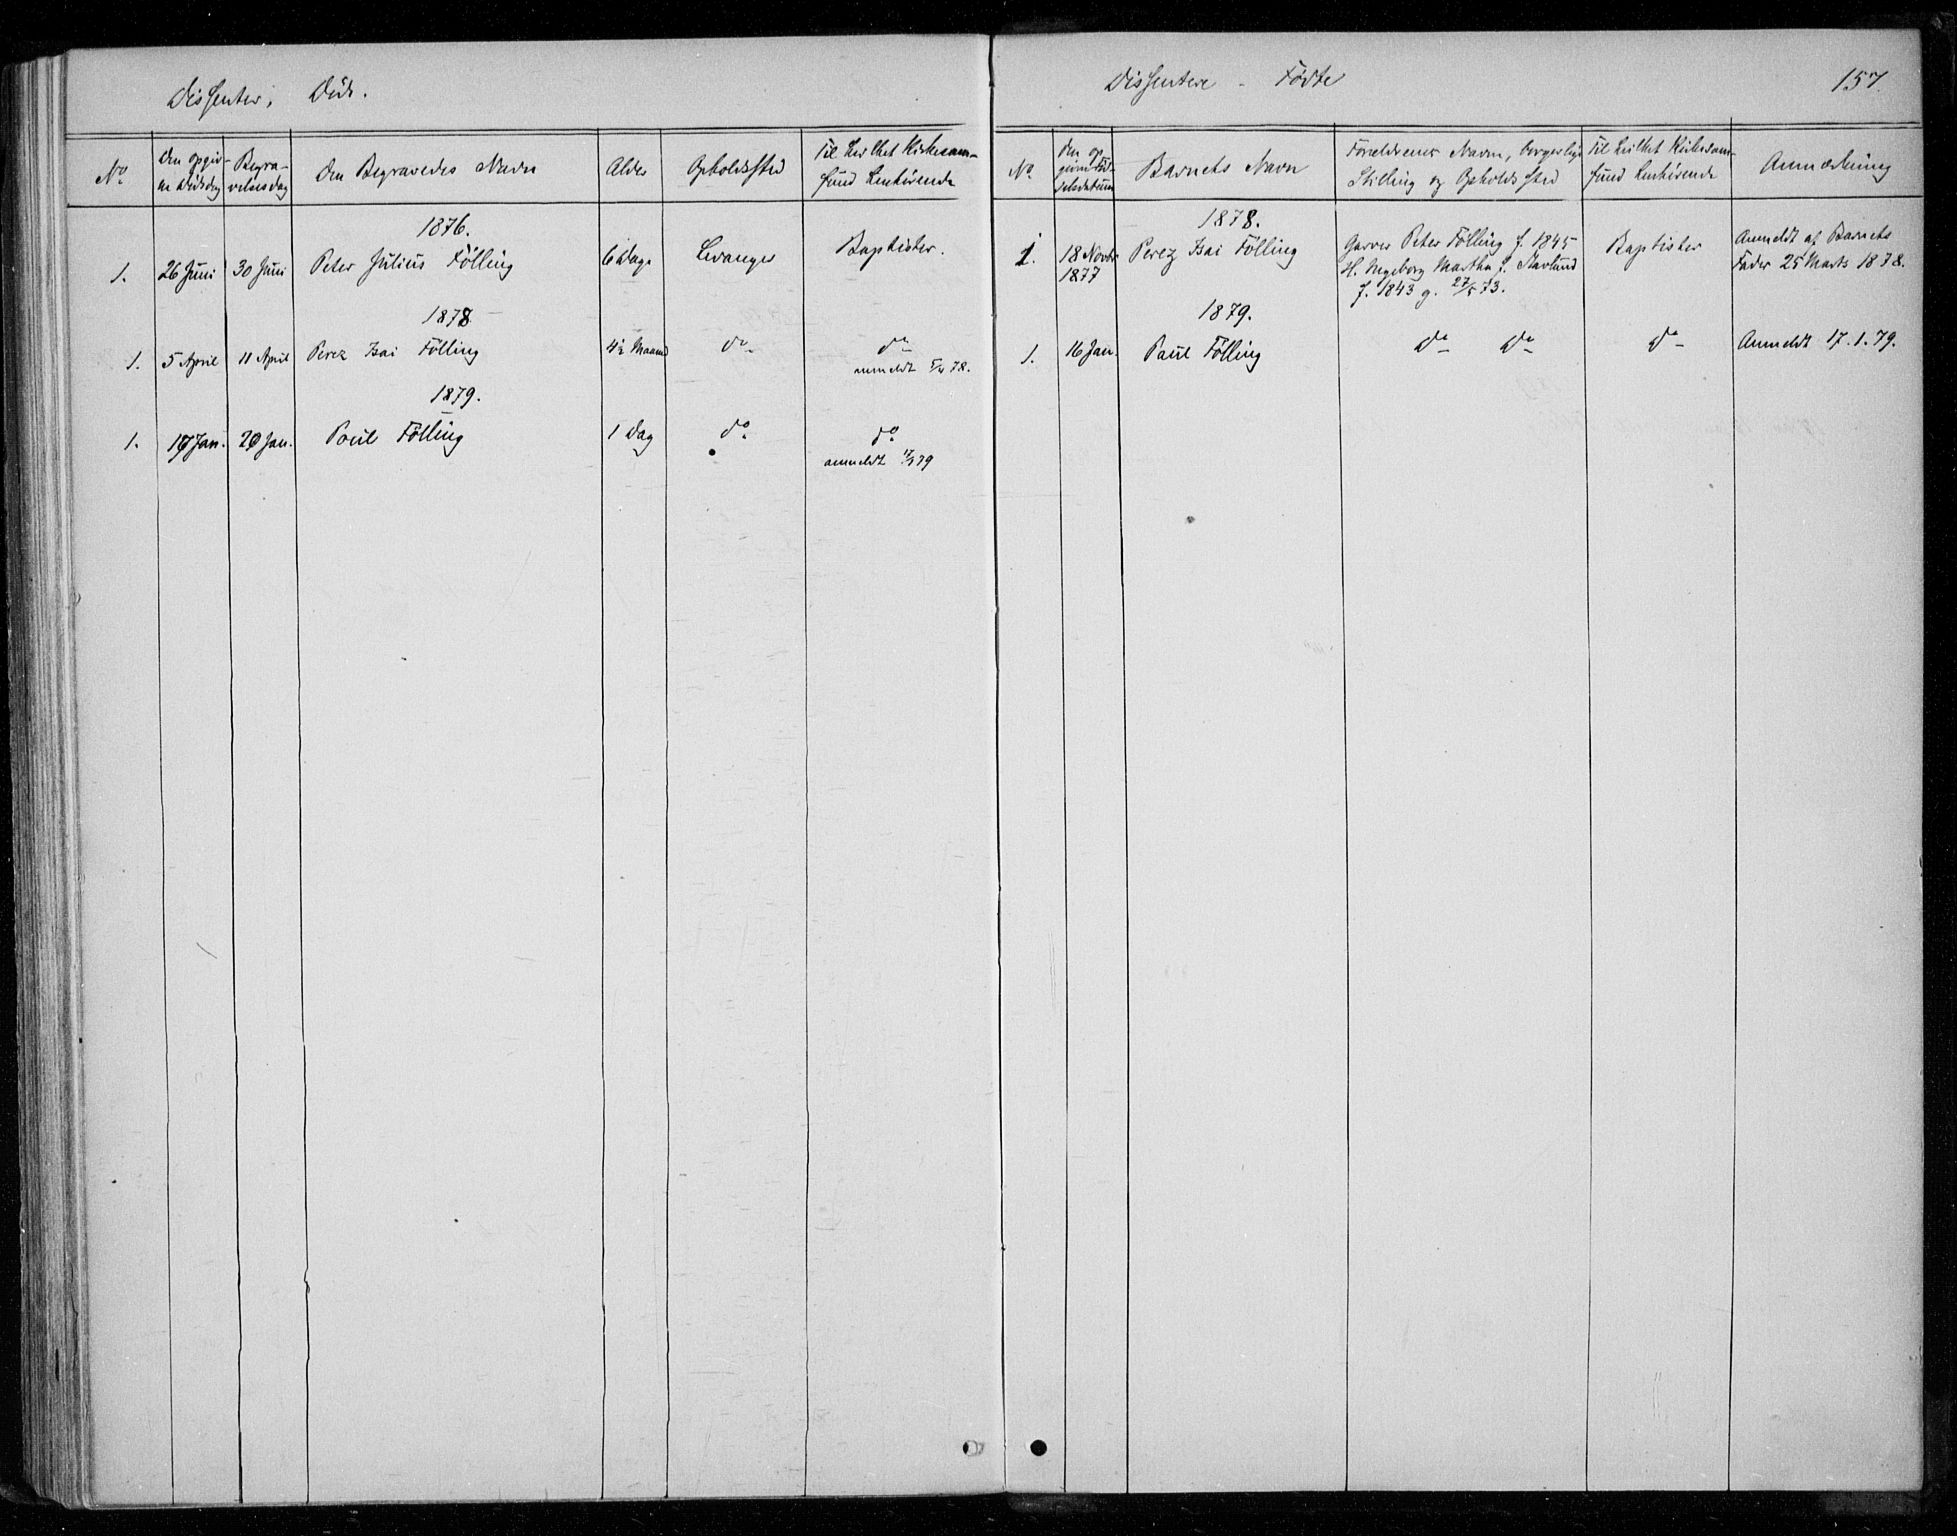 Dissenter, Døde.
No
Den opgiv-
ne Dødsdag
Begra-
velsesdag
Den Begravedes Navn
Alder
Opholdssted
Til hvilket Kirkesam-
fund henhørende
1876.
1. 26 Juni 30 Juni Peter Julius Fölling 6 Dage Levanger Baptister.
1878
1. 5 April 11 April Perez Isai Fölling 4½ Maaned do do
anmeldt 5/4 78.
1879.
1. 17 Jan. 20 Jan. Paul Fölling 1 Dag do do
anmeldt 17/1 79
Dissentere - Födte
157.
No.
Den op-
givne Föd-
selsdatum
Barnets Navn
Forældrenes Navn, borgerlige
Stilling og Opholdssted
Til hvilket Kirkesam-
fund henhørende
Anmærkning
1878.
1. 18 Novbr
1877
Perez Isai Fölling
Garver Peter Fölling f. 1845
H. Ingeborg Martha f.
f. 1843 g. 27/5 73.
Baptister
Anmeldt af Barnets
Fader 25 Marts 1878.
1879.
1. 16 Jan. Paul Fölling do do do Anmeldt 17.1.79.